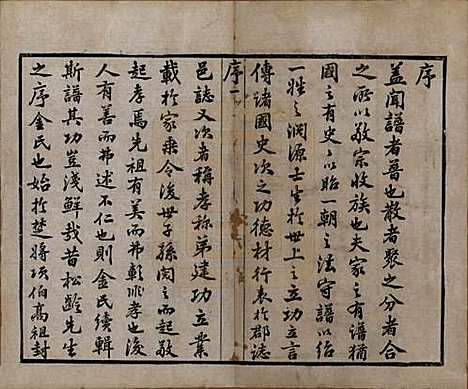 序
蓋聞譜者普也散者聚之分者合
之所以敬宗收族也夫家之有譜猶
國之有史之以昭一朝之法守譜以紹
一姓之淵源士生於世上之立功立言
傳諸國史次之功德材行表於郡誌
序一
邑誌又次者稱孝稱弟建功立業
載於家乘令後世子孫閱之而起敬
起孝焉先祖有美而弗彰非孝也後
人有善而弗述不仁也則金氏續輯
斯譜其功豈淺鮮哉昔松齡先生
之序金氏也始於楚將項伯高祖封